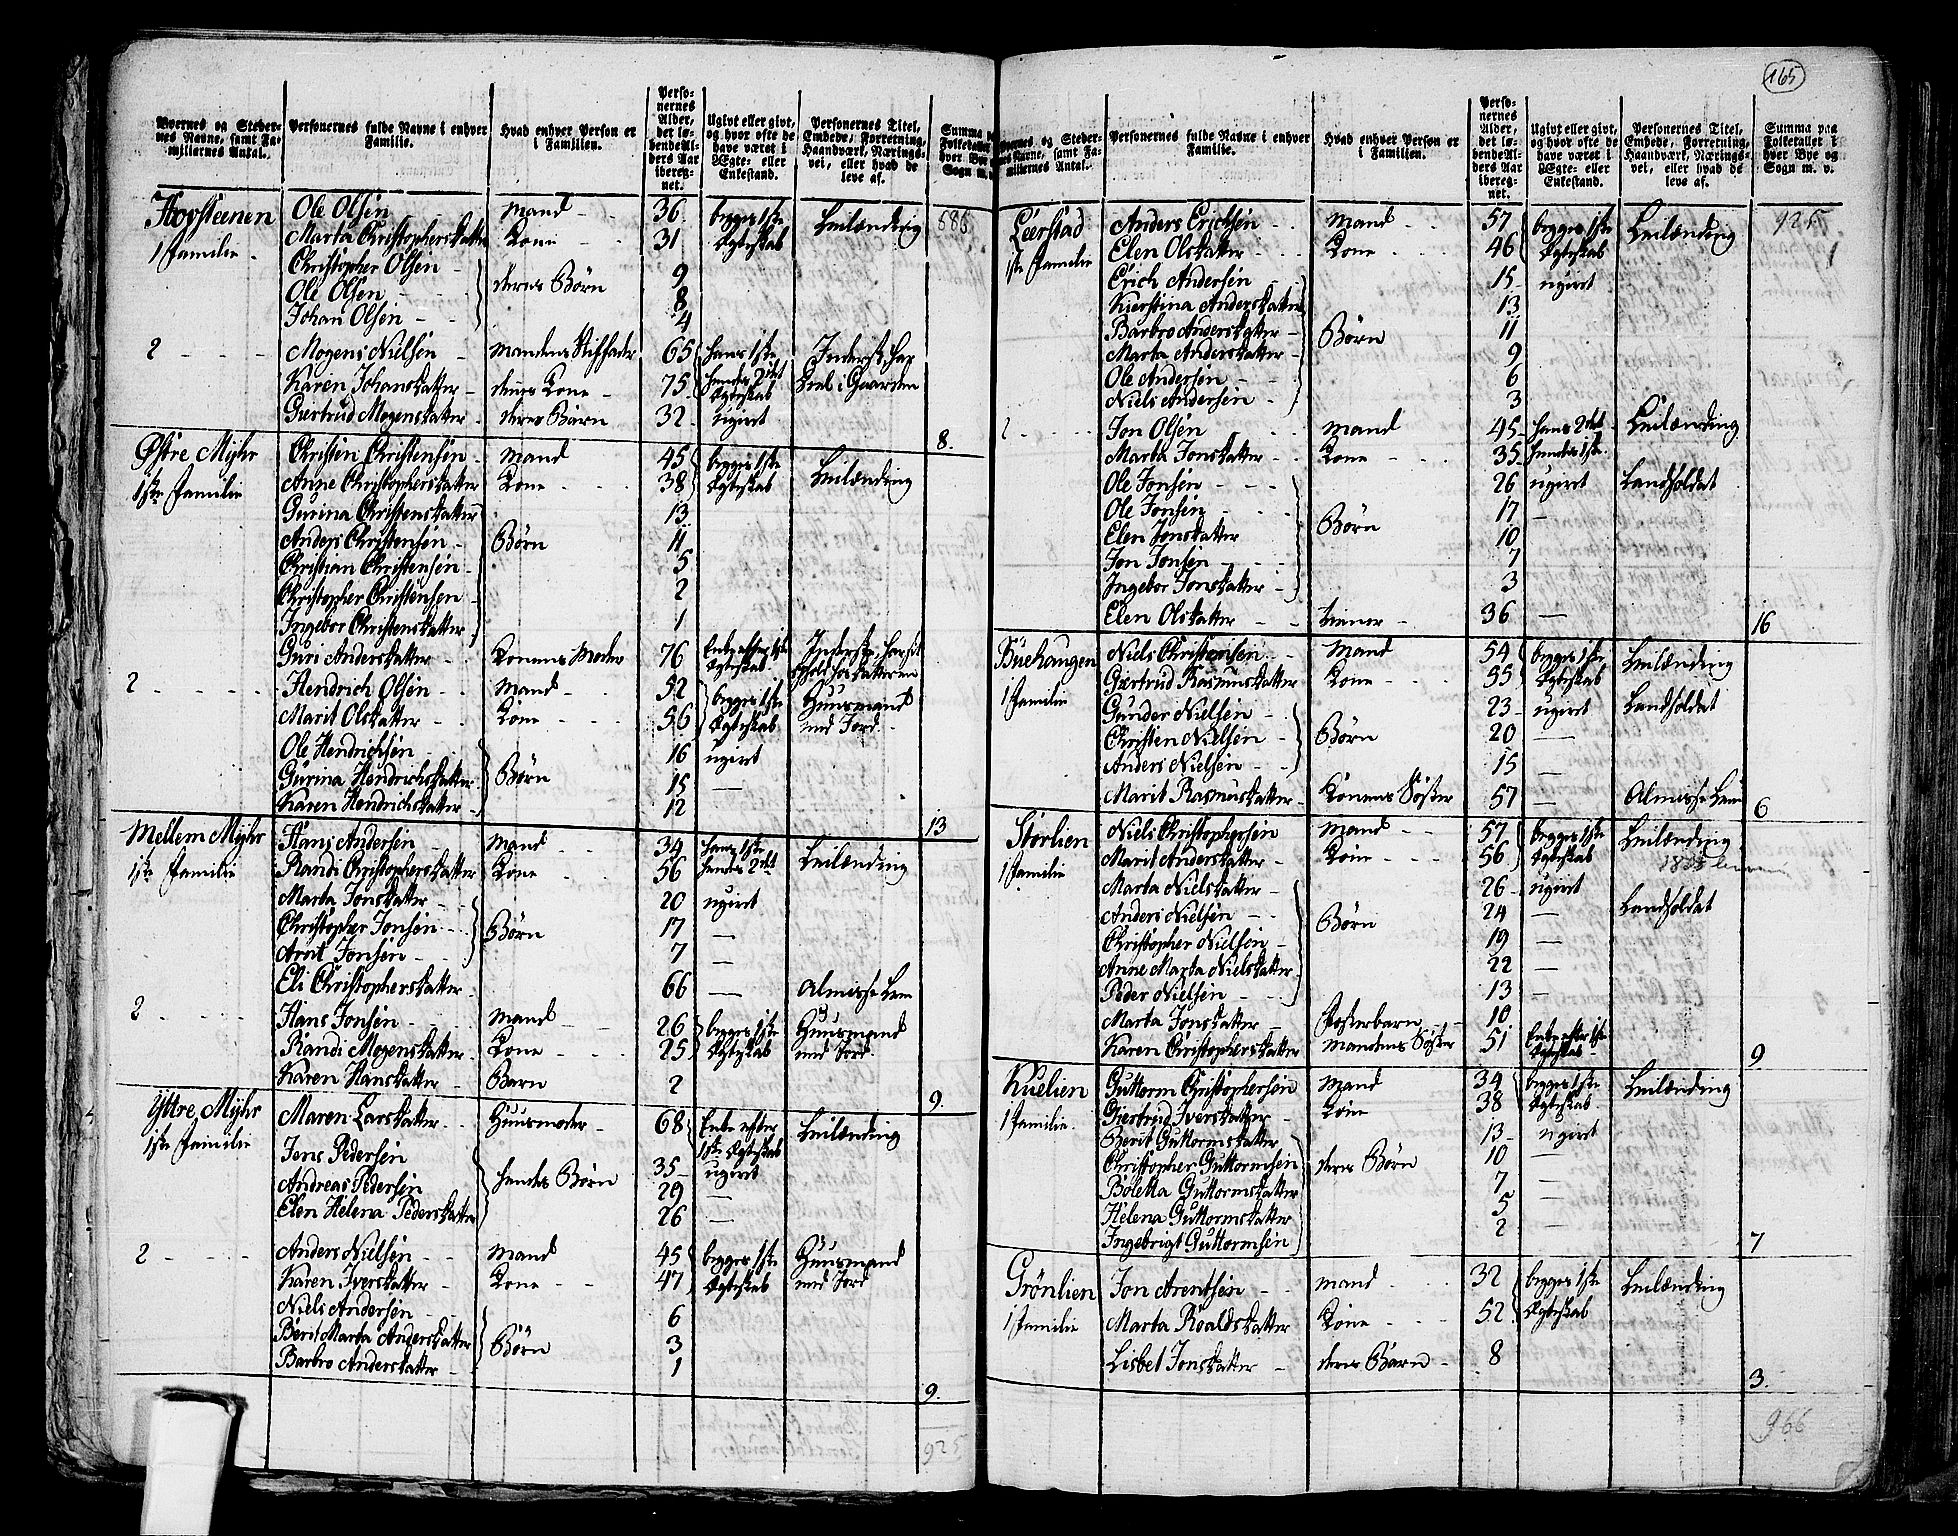 165
Byernes og Stedernes Navne, samt Familiernes Antal. | Personernes fulde Navne i enhver Familie. | Hvad enhver Person er i Familien. | Personernes Alder, det løbende Alders Aar iberegnet. | Ugivt eller givt, og hvor ofte de have været i Ægte- eller Enkestand. | Personernes Titel, Embede, Forretning, Haandværk, Næringsvei, eller hvad de leve af. | Summa paa Folketallet i hver Bye og Sogn m. v.
Ole Olsen | Mand | 36 | begge 1ste | Leilænding
1 Familie | Marta Christopherskatter | Kone | 31 | Ægteskab
Christopher Olsen | 9
Ole Olsen | deres Börn | 8
Johan Olsen | 4
2 | Mogens Nielsen | Mandens Stiffader | 65 | hans 1ste
Karen Johanskatter | dennes Kone | 75 | hendes 2det Ægteskab
Giertrud Mogenskatter | deres Barn | 32 | ugivt | 8.
Østre Myhr | Christen Christensen | Mand | 45 | begge 1ste | Leilænding
1ste Familie | Anne Christopherskatter | Kone | 38 | Ægteskab
Gurina Christenskatter | 13
Anders Christensen | Börn | 11
Christian Christensen | 5
Christopher Christensen | 2
Ingebor Christenskatter | 1
Guri Anderskatter | Konens Moder | 76 | Enke efter 1ste Ægteskab
2 | Hendrich Olsen | Mand | 52 | begge 1ste | Huusmand
Marit Olskatter | Kone | 56 | Ægteskab | med Jord
Ole Hendrichsen | 16 | ugivt
Gurina Hendrichskatter | Börn | 15 | —
Karen Hendrichskatter | 12 | 13
Mellem Myhr | Hans Andersen | Mand | 34 | hans 1ste | Leilænding
1ste Familie | Randi Christopherskatter | Kone | 56 | hendes 2det
Marta Jonskatter | 20 | ugivt
Christopher Jonsen | Börn | 17 | —
Arnt Jonsen | 7 | —
Eli Christopherskatter | 66 | — | Almisse Lem
2 | Hans Jonsen | Mand | 26 | begge 1ste | Huusmand
Randi Mogenskatter | Kone | 25 | Ægteskab | med Jord
Karen Hanskatter | Barn | 2 | 9.
Yttre Myhr | Maren Larskatter | Huusmoder | 68 | Enke efter 1ste Ægteskab | Leilænding
1ste Familie | Jens Pedersen | 35 | ugivt
Andreas Pedersen | hendes Börn | 29 | —
Elen Helena Pederskatter | 26 | —
2 | Anders Nielsen | Mand | 45 | begge 1ste | Huusmand
Karen Iverskatter | Kone | 47 | Ægteskab | med Jord
Niels Andersen | 6
Berit Marta Anderskatter | Börn | 3
Barbro Anderskatter | 1 | 9.
925
Byernes og Stedernes Navne, samt Familiernes Antal. | Personernes fulde Navne i enhver Familie. | Hvad enhver Person er i Familien. | Personernes Alder, det løbende Alders Aar iberegnet. | Ugivt eller givt, og hvor ofte de have været i Ægte- eller Enkestand. | Personernes Titel, Embede, Forretning, Haandværk, Næringsvei, eller hvad de leve af. | Summa paa Folketallet i hver Bye og Sogn m. v.
Leerstad | Anders Erichsen | Mand | 57 | begge 1ste | Leilænding | 925
1ste Familie | Elen Olskatter | Kone | 46 | Ægteskab
Erich Andersen | 15 | ugivt
Kierstina Anderskatter | 13
Barbro Anderskatter | Börn | 11
Marta Anderskatter | 9
Ole Andersen | 6
Niels Andersen | 3
2 | Jon Olsen | Mand | 45 | hans 2det | Leilænding
Marta Jonskatter | Kone | 35 | hendes 1ste
Ole Jonsen | 26 | ugivt | Landsoldat
Ole Jonsen | 17 | —
Elen Jonskatter | Börn | 10
Jon Jonsen | 7
Ingebor Jonskatter | 3
Elen Olskatter | tiener | 36 | — | 16
Buehaugen | Niels Christensen | Mand | 54 | begge 1ste | Leilænding
1 Familie | Giertrud Rasmuskatter | Kone | 55 | Ægteskab
Gunder Nielsen | 23 | ugivt | Landsoldat
Christen Nielsen | Börn | 20 | —
Anders Nielsen | 15 | —
Marit Rasmuskatter | Konens Söster | 57 | — | Almisse Lem | 6
Storlien | Niels Christophersen | Mand | 57 | begge 1ste | Leilænding
1 Familie | Marit Anderskatter | Kone | 56 | Ægteskab
Marta Nielskatter | 26 | ugivt
Anders Nielsen | Börn | 24 | — | Landsoldat
Christopher Nielsen | 19 | —
Anne Marta Nielskatter | 22 | —
Peder Nielsen | 13 | —
Marta Jonskatter | Posterbarn | 10
Karen Christopherskatter | Mandens Söster | 51 | Enke efter 1ste Ægteskab | 9
Kuelien | Guttorm Christophersen | Mand | 34 | begge 1ste | Leilænding
1 Familie | Giertrud Iverskatter | Kone | 38 | Ægteskab
Berit Guttormskatter | 13 | ugivt
Christopher Guttormsen | deres Börn | 10 | —
Boletta Guttormskatter | 7 | —
Helena Guttormskatter | 5 | —
Ingebrigt Guttormsen | 2 | — | 7
Grönlien | Jon Arentsen | Mand | 32 | begge 1ste | Leilænding
1 Familie | Marta Roaldskatter | Kone | 52 | Ægteskab
Lisbet Jonskatter | deres Barn | 8 | 3.
966